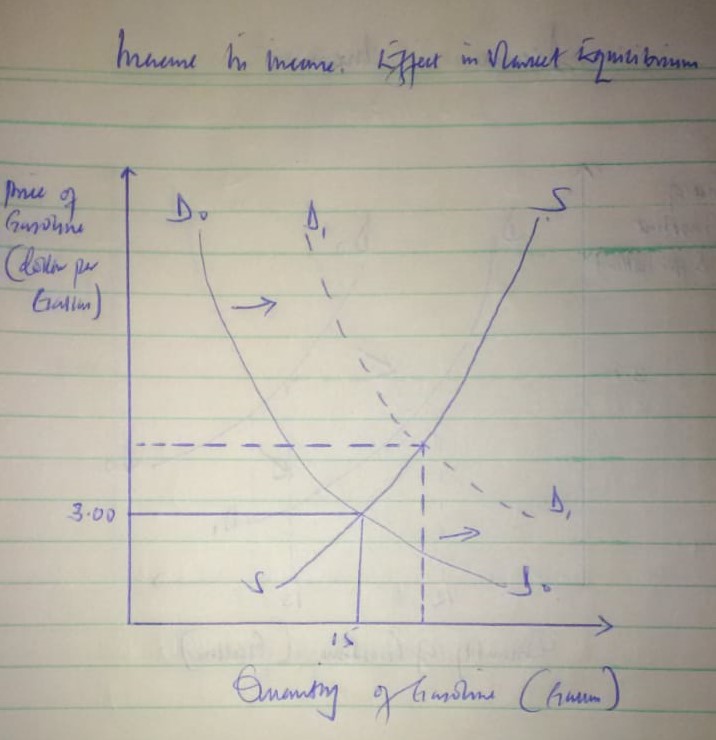 Increase in income. Effect in Market Equilibrium
Price of
Gasoline
(dollar per
Gallon)
D₀
D₁
S
3.00
D₁
S
D₀
15
Quantity of Gasoline (Gallon)